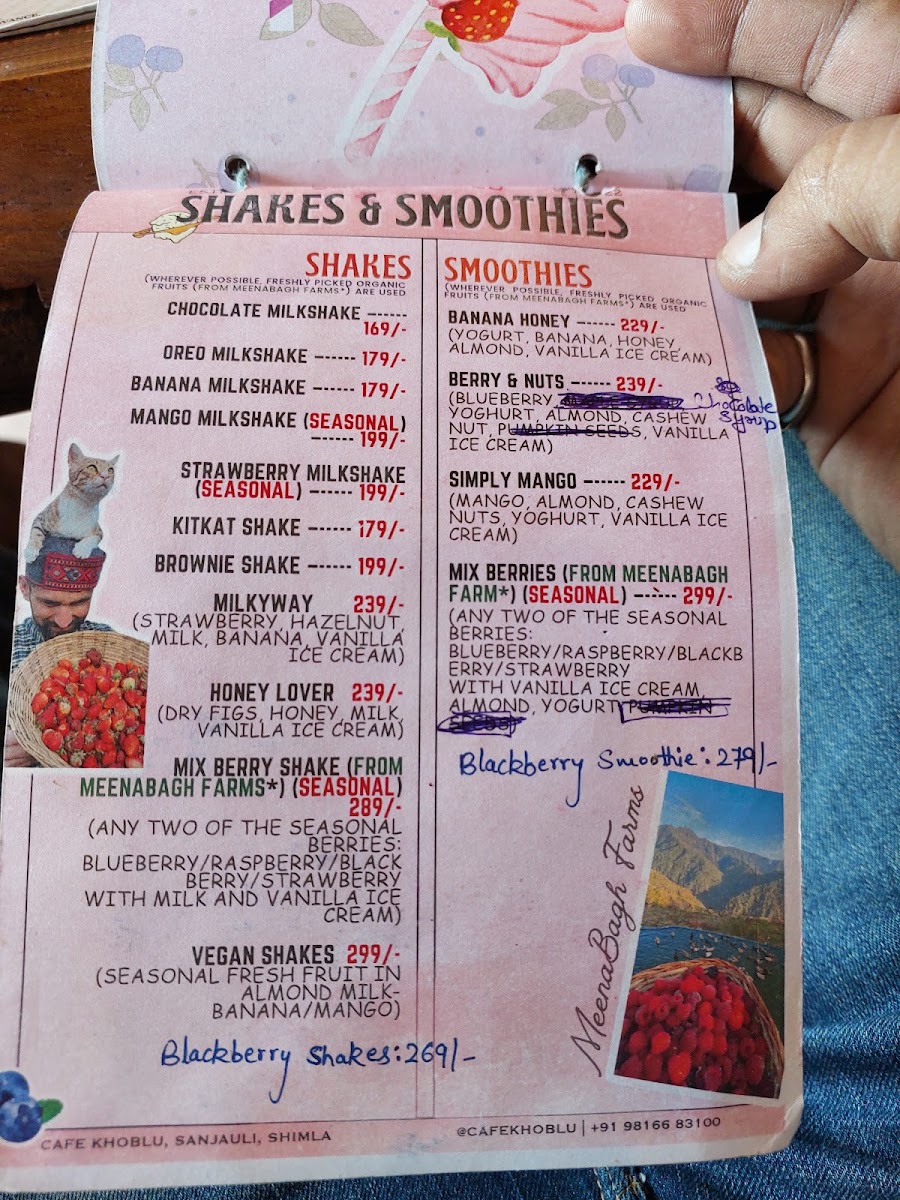 VANCE
SHAKES & SMOOTHIES
SHAKES
(WHEREVER POSSIBLE, FRESHLY PICKED ORGANIC
FRUITS (FROM MEENABAGH FARMS*) ARE USED
CHOCOLATE MILKSHAKE ------
169/-
OREO MILKSHAKE ------ 179/-
BANANA MILKSHAKE ------ 179/-
MANGO MILKSHAKE (SEASONAL)
------ 199/-
STRAWBERRY MILKSHAKE
(SEASONAL) ------ 199/-
KITKAT SHAKE ------ 179/-
BROWNIE SHAKE ------ 199/-
MILKYWAY 239/-
(STRAWBERRY, HAZELNUT,
MILK, BANANA, VANILLA
ICE CREAM)
HONEY LOVER 239/-
(DRY FIGS, HONEY, MILK,
VANILLA ICE CREAM)
MIX BERRY SHAKE (FROM
MEENABAGH FARMS*) (SEASONAL)
289/-
(ANY TWO OF THE SEASONAL
BERRIES:
BLUEBERRY/RASPBERRY/BLACK
BERRY/STRAWBERRY
WITH MILK AND VANILLA ICE
CREAM)
VEGAN SHAKES 299/-
(SEASONAL FRESH FRUIT IN
ALMOND MILK-
BANANA/MANGO)
Blackberry Shakes: 269/-
SMOOTHIES
(WHEREVER POSSIBLE, FRESHLY PICKED ORGANIC
FRUITS (FROM MEENABAGH FARMS*) ARE USED
BANANA HONEY ------ 229/-
(YOGURT, BANANA, HONEY,
ALMOND, VANILLA ICE CREAM)
BERRY & NUTS ------ 239/-
(BLUEBERRY, Chocolate Syrup
YOGHURT, ALMOND, CASHEW
NUT, PUMPKIN SEEDS, VANILLA
ICE CREAM)
SIMPLY MANGO ------ 229/-
(MANGO, ALMOND, CASHEW
NUTS, YOGHURT, VANILLA ICE
CREAM)
MIX BERRIES (FROM MEENABAGH
FARM*) (SEASONAL) ------ 299/-
(ANY TWO OF THE SEASONAL
BERRIES:
BLUEBERRY/RASPBERRY/BLACKB
ERRY/STRAWBERRY
WITH VANILLA ICE CREAM,
ALMOND, YOGURT, PUMPKIN
SEEDS)
Blackberry Smoothie: 279/-
MeenaBagh Farms
CAFE KHOBLU, SANJAULI, SHIMLA
@CAFEKHOBLU | +91 98166 83100